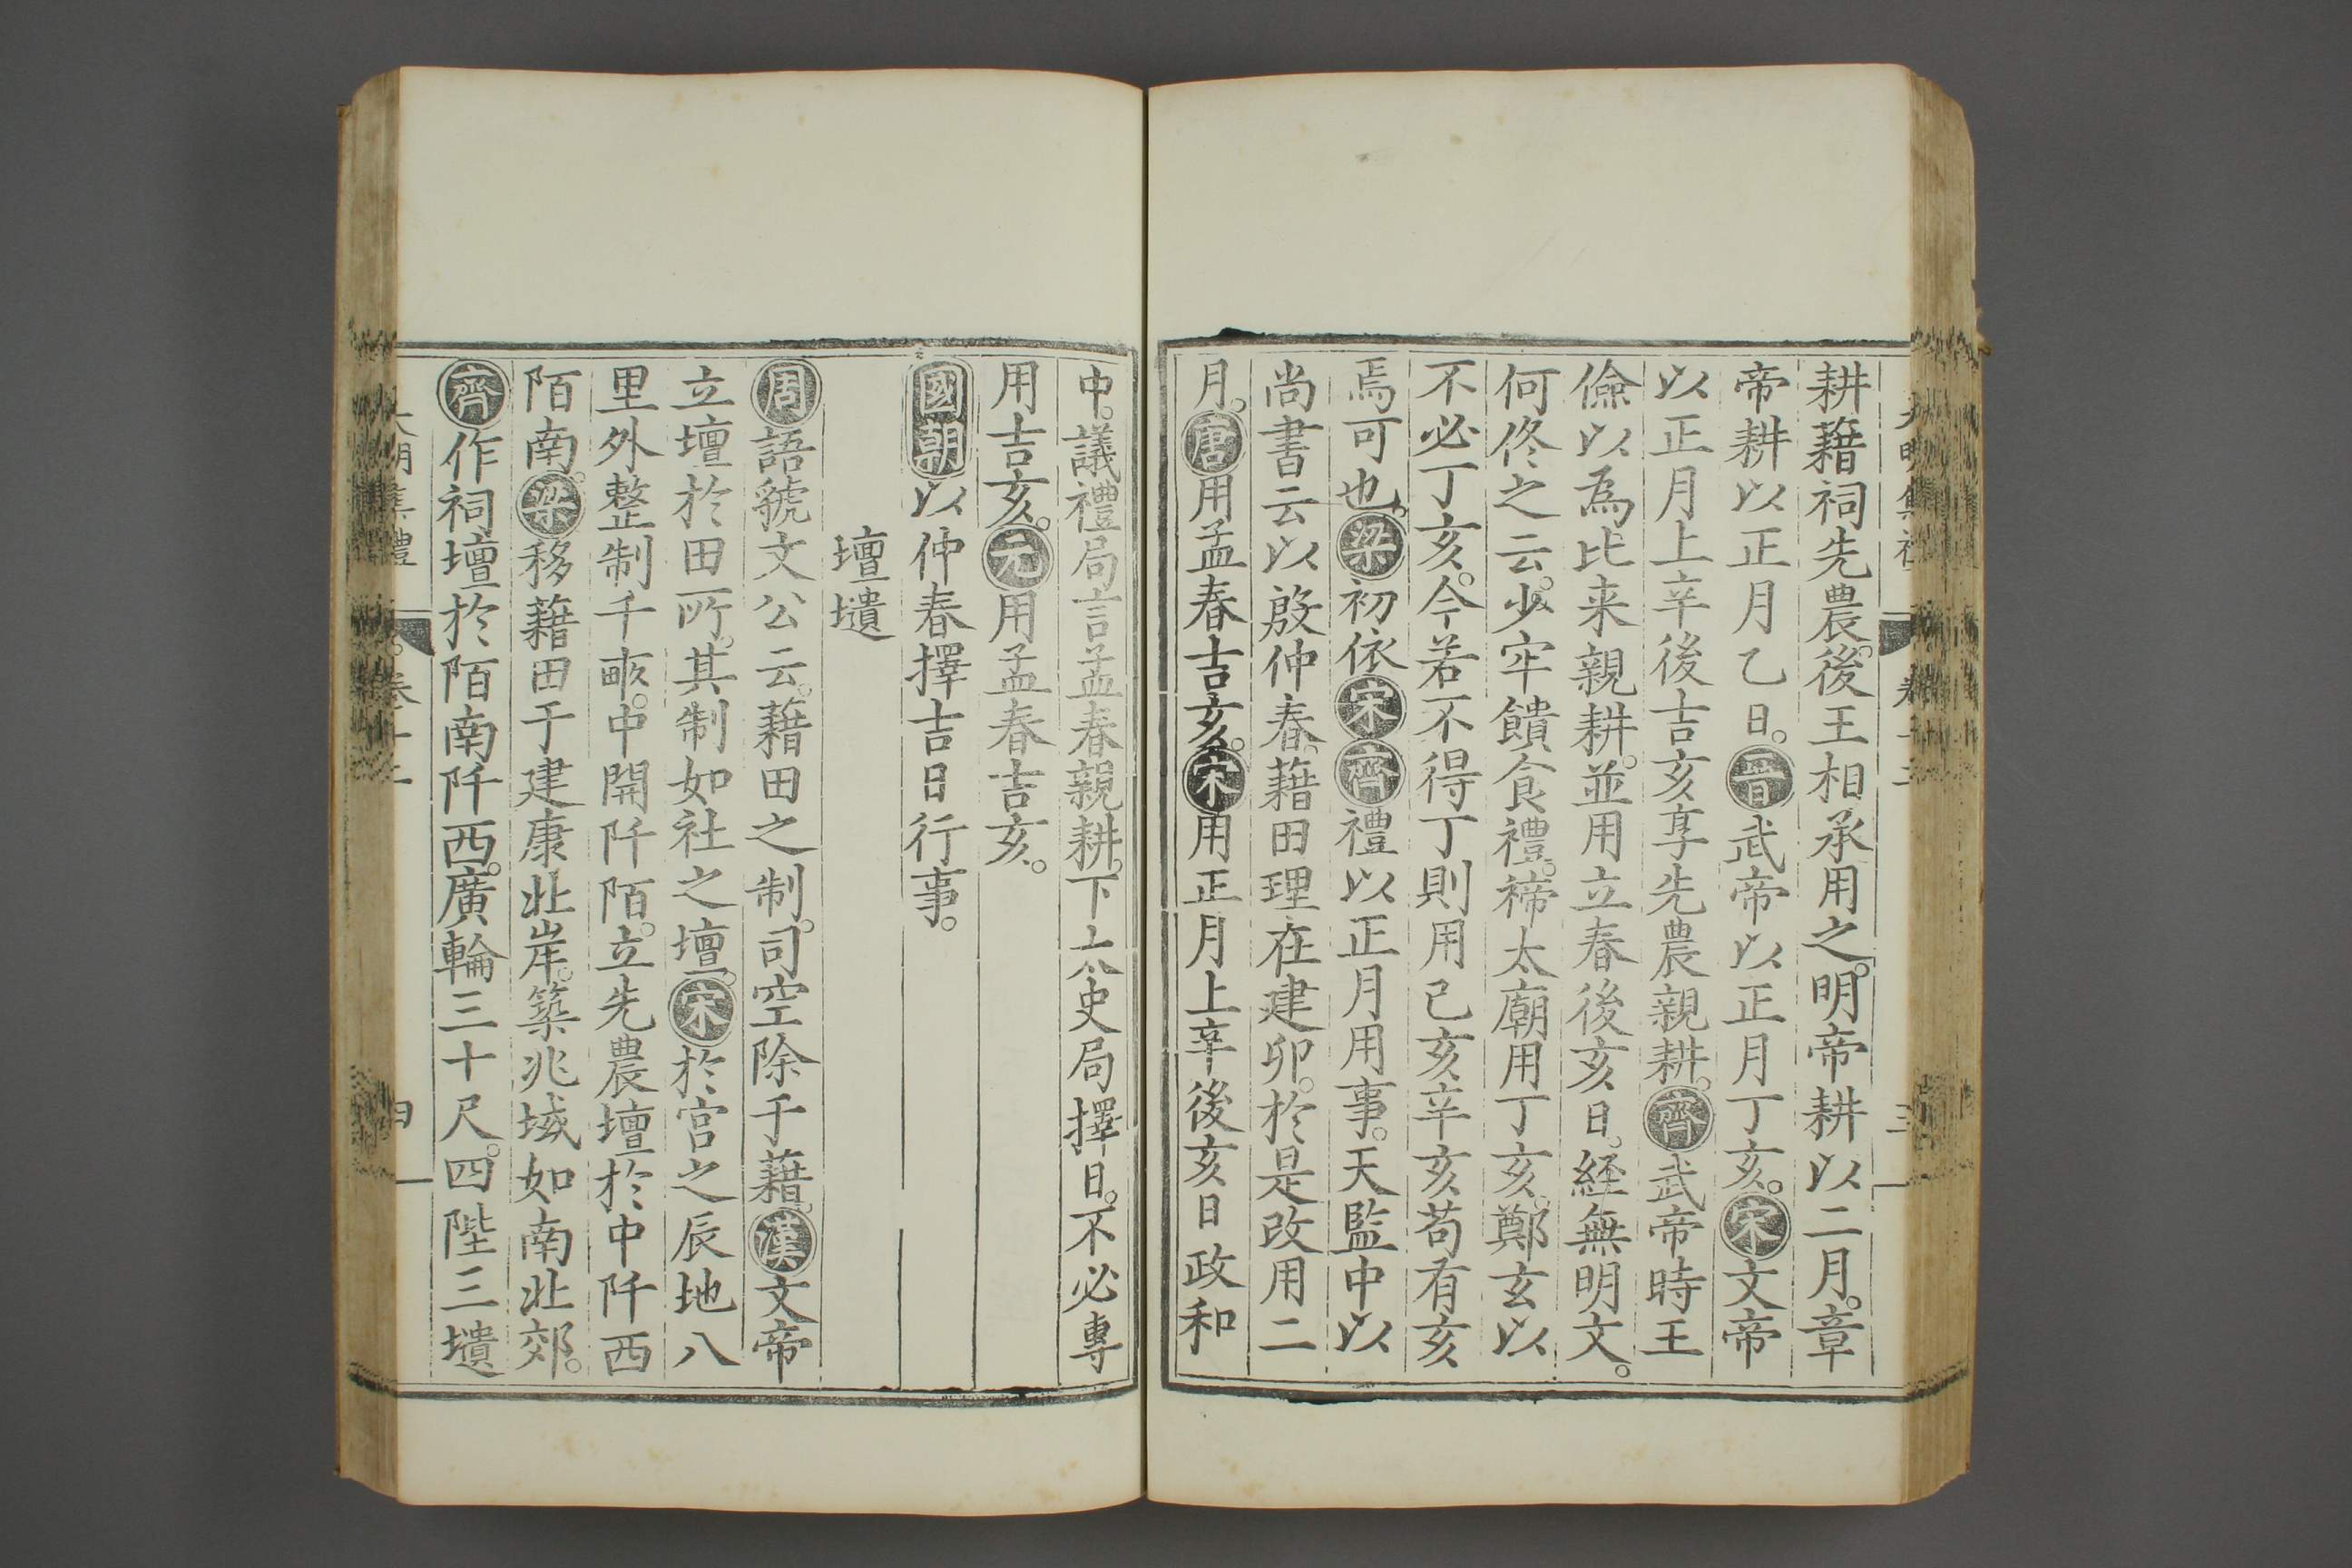 耕藉祠先農。後王相承用之。明帝耕以二月。章
帝耕以正月乙日。晉武帝以正月丁亥。宋文帝
以正月上辛後吉亥享先農親耕。齊武帝時王
儉以為比来親耕。並用立春後亥日。経無明文。
何佟之云。少牢饋食禮。禘太廟用丁亥。鄭玄以
不必丁亥。今若不得丁則用己亥辛亥苟有亥
焉可也。梁初依宋齊禮以正月用事。天監中以
尚書云以殷仲春。藉田理在建卯。於是改用二
月。唐用孟春吉亥。宋用正月上辛後亥日政和
中。議禮局言孟春親耕。下太史局擇日。不必專
用吉亥。元用孟春吉亥。
國朝以仲春擇吉日行事。
壇壝
周語虢文公云。藉田之制。司空除于藉。漢文帝
立壇於田所。其制如社之壇。宋於宮之辰地八
里外整制千畝。中開阡陌。立先農壇於中阡西
陌南。梁移藉田于建康北岸。築兆域如南北郊。
齊作祠壇於陌南阡西。廣輪三十尺。四陛三壝
大明集禮 卷十二 四